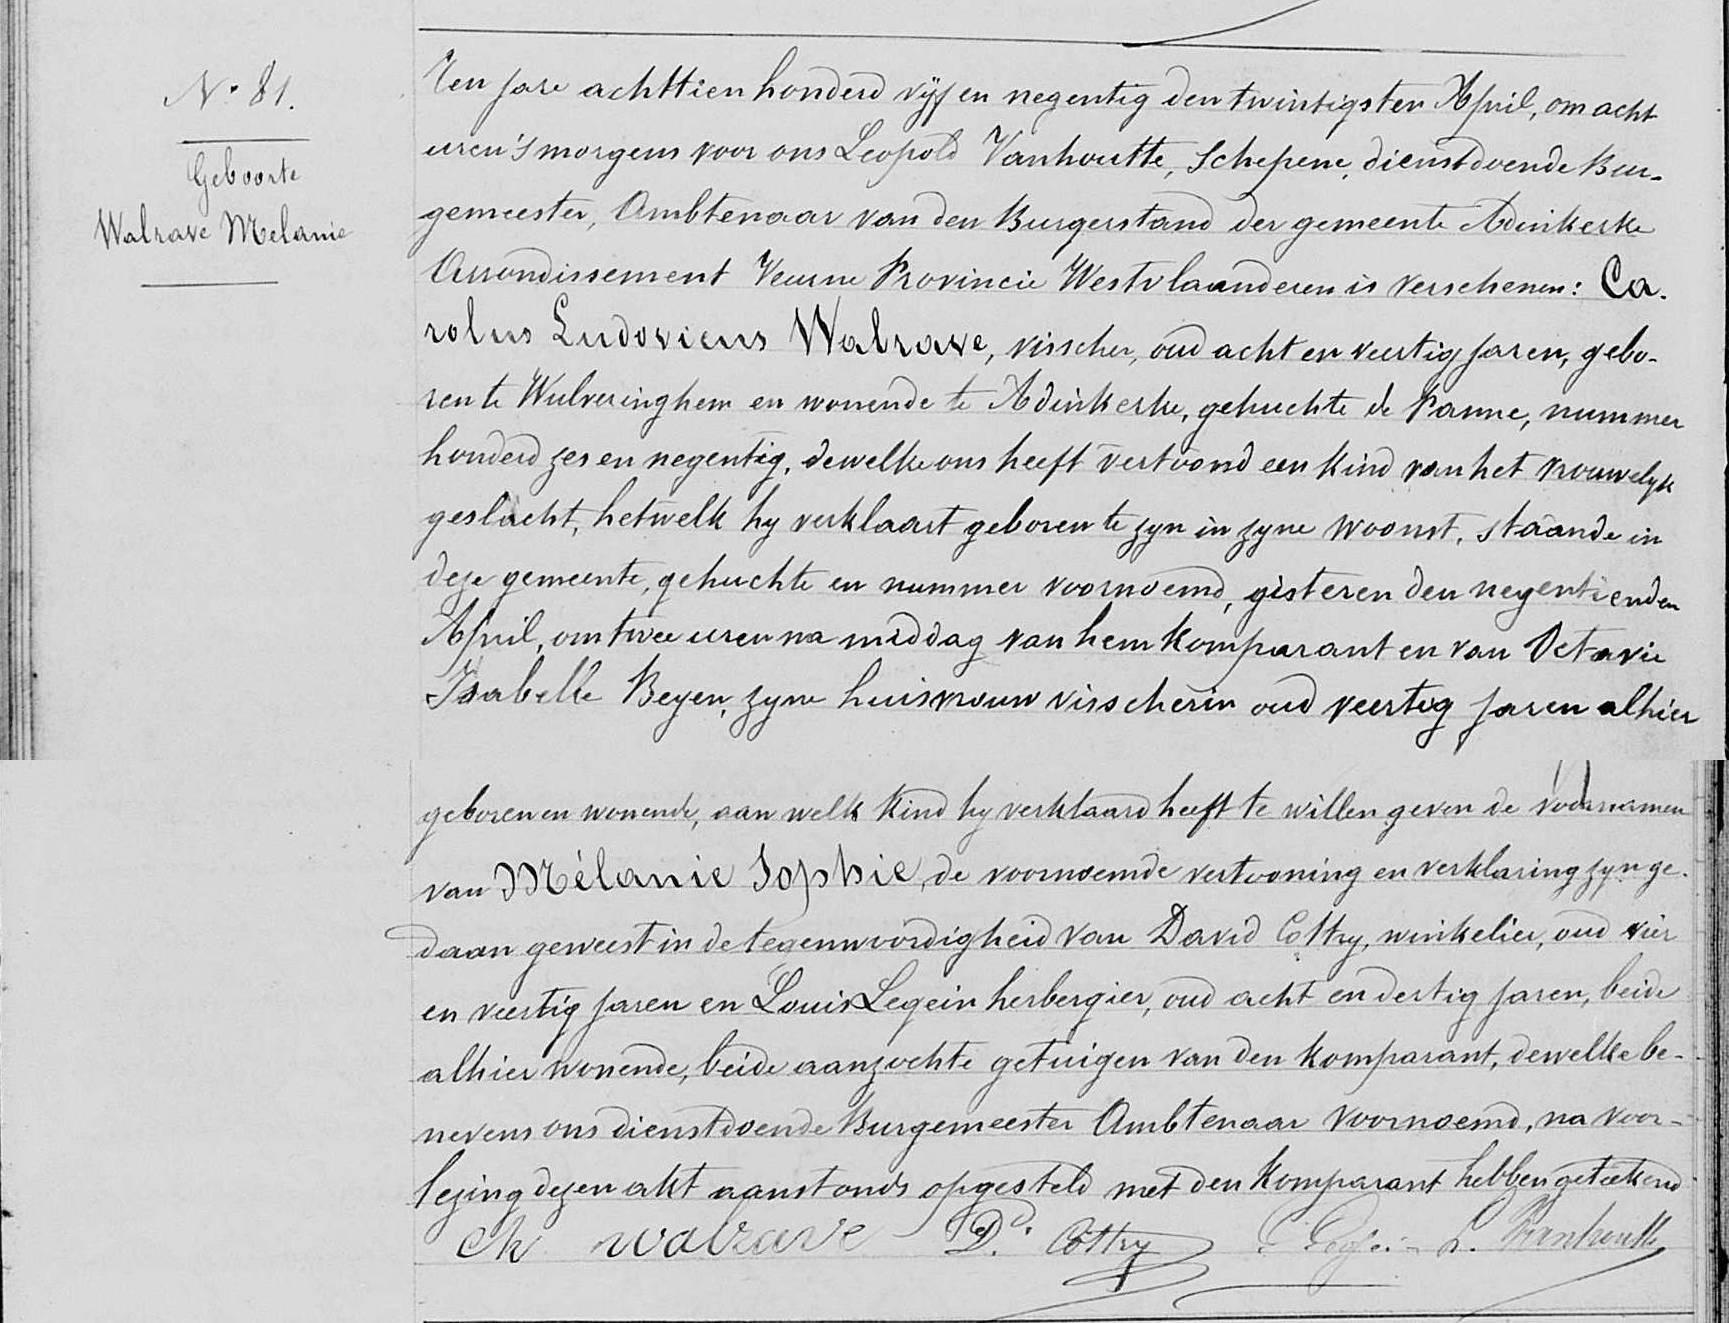 No 81.
Geboorte
Walrave Melanie
Ten jare achttien honderd vyf en negentig den twintigsten April, om acht
uren 's morgens voor ons Leopold Vanhoutte, Schepene, dienstdoende Bur-
gemeester, Ambtenaar van den Burgerstand der gemeente Adinkerke
Arrondissement Veurne Provincie Westvlaanderen is verschenen: Ca-
rolus Ludovicus Walrave, visscher, oud acht en veertig jaren, gebo-
ren te Wulveringhem en wonende te Adinkerke, gehuchte de Panne, nummer
honderd zes en negentig, dewelke ons heeft vertoond een kind van het vrouwelyk
geslacht, hetwelk hy verklaart geboren te zyn in zyne woonst, staande in
deze gemeente, gehuchte en nummer voornoemd, gisteren den negentienden
April, om twee uren na middag van hem komparant en van Octavie
Isabelle Beyen, zyne huisvrouw visscherin oud veertig jaren alhier
geboren en wonende, aan welk kind hy verklaard heeft te willen geven de voornamen
van Mélanie Sophie, de voornoemde vertooning en verklaring zyn ge-
daan geweest in de tegenwoordigheid van David Cottry, winkelier, oud vier
en veertig jaren en Louis Legein herbergier, oud acht en dertig jaren, beide
alhier wonende, beide aanzochte getuigen van den komparant, dewelke be-
nevens ons dienstdoende Burgemeester Ambtenaar voornoemd, na voor-
lezing dezen akt aanstonds opgesteld met den komparant hebben geteekend
Ch Walrave Dd. Cottry L Legein L. Vanhoutte